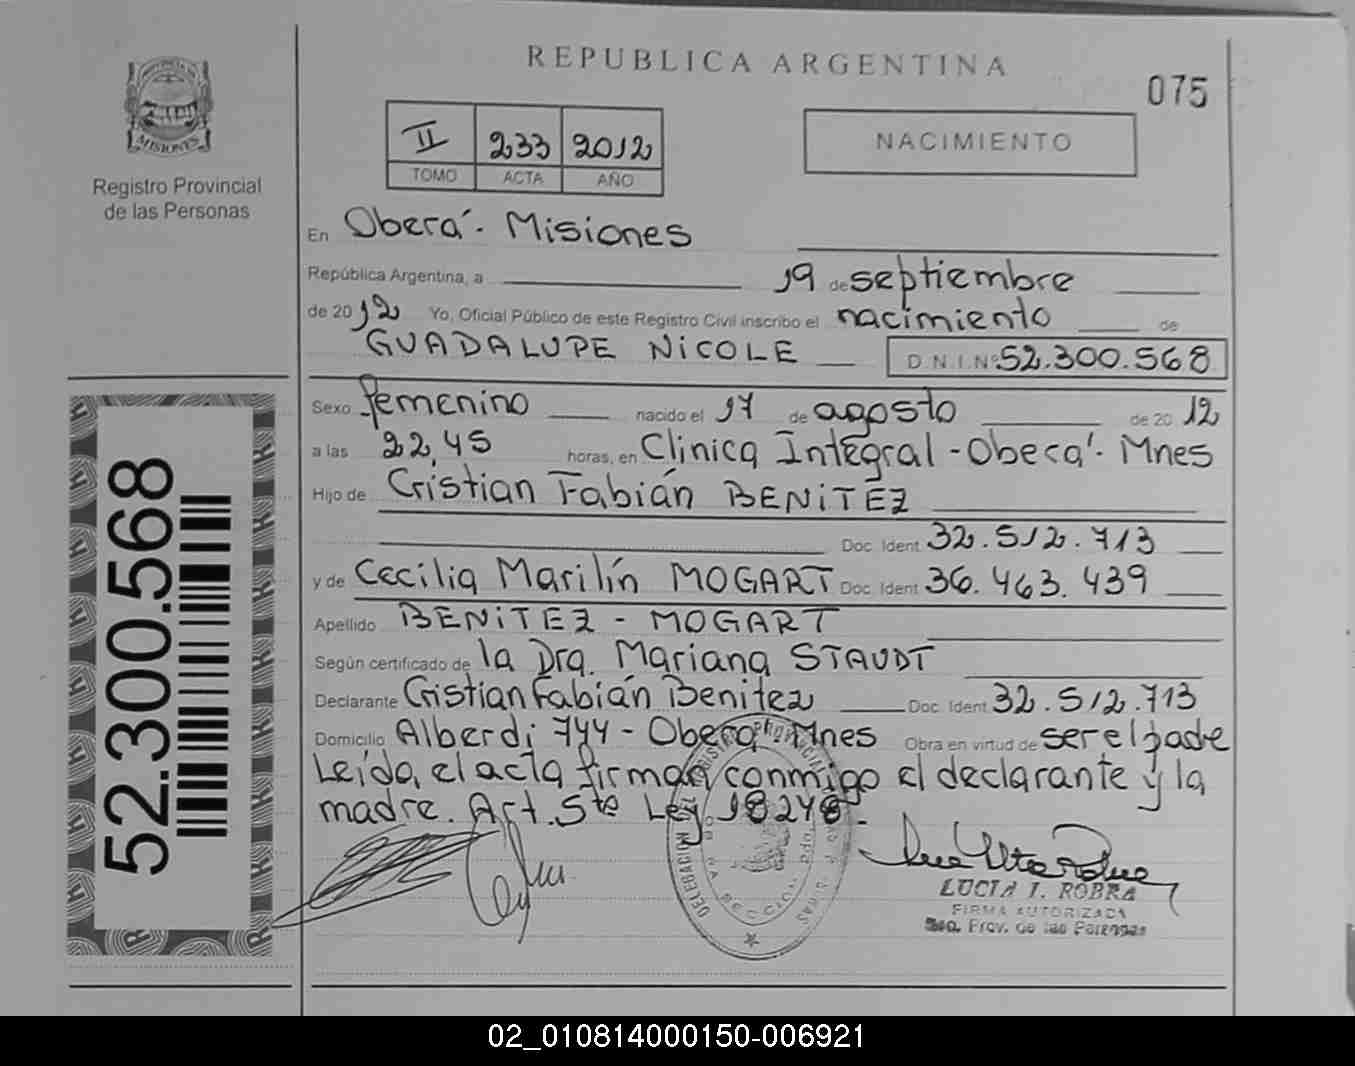 REPUBLICA ARGENTINA
075
MISIONES
Registro Provincial
de las Personas
II 233 2012
TOMO ACTA AÑO
NACIMIENTO
En Oberá - Misiones
República Argentina, a 19 de septiembre
de 2012 Yo, Oficial Público de este Registro Civil inscribo el nacimiento de
GUADALUPE NICOLE D.N.I.Nº 52.300.568
Sexo femenino nacido el 17 de agosto de 2012
a las 22,45 horas, en Clinica Integral - Oberá - Mnes
Hijo de Cristian Fabián BENITEZ
Doc. Ident. 32.512.713
y de Cecilia Marilín MOGART Doc. Ident. 36.463.439
Apellido BENITEZ - MOGART
Según certificado de la Dra. Mariana STAUDT
Declarante Cristian Fabián Benitez Doc. Ident. 32.512.713
Domicilio Alberdi 744 - Oberá Mnes Obra en virtud de ser el padre
Leída el acta firman conmigo el declarante y la
madre. Art. 5te Ley 18248.
LUCIA I. ROBRA
FIRMA AUTORIZADA
Reg. Prov. de las Personas
52.300.568
02_010814000150-006921